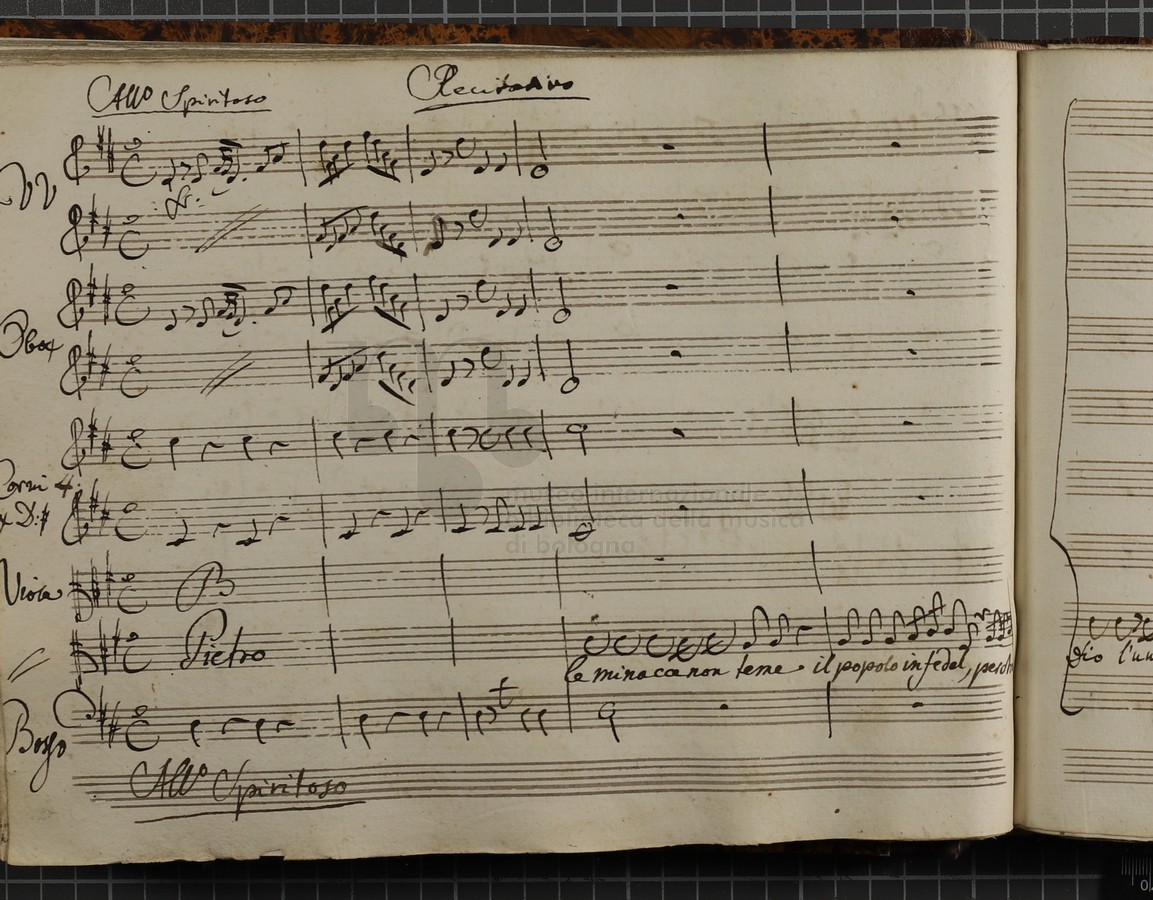 All.o Spiritoso Recitativo
VV
Oboè
Corni 4:
Viola
Pietro
le minacce non teme il popolo infedel, perchè
Dio l'un
Basso
All.o Spiritoso
museo internazionale
e biblioteca della musica
di bologna